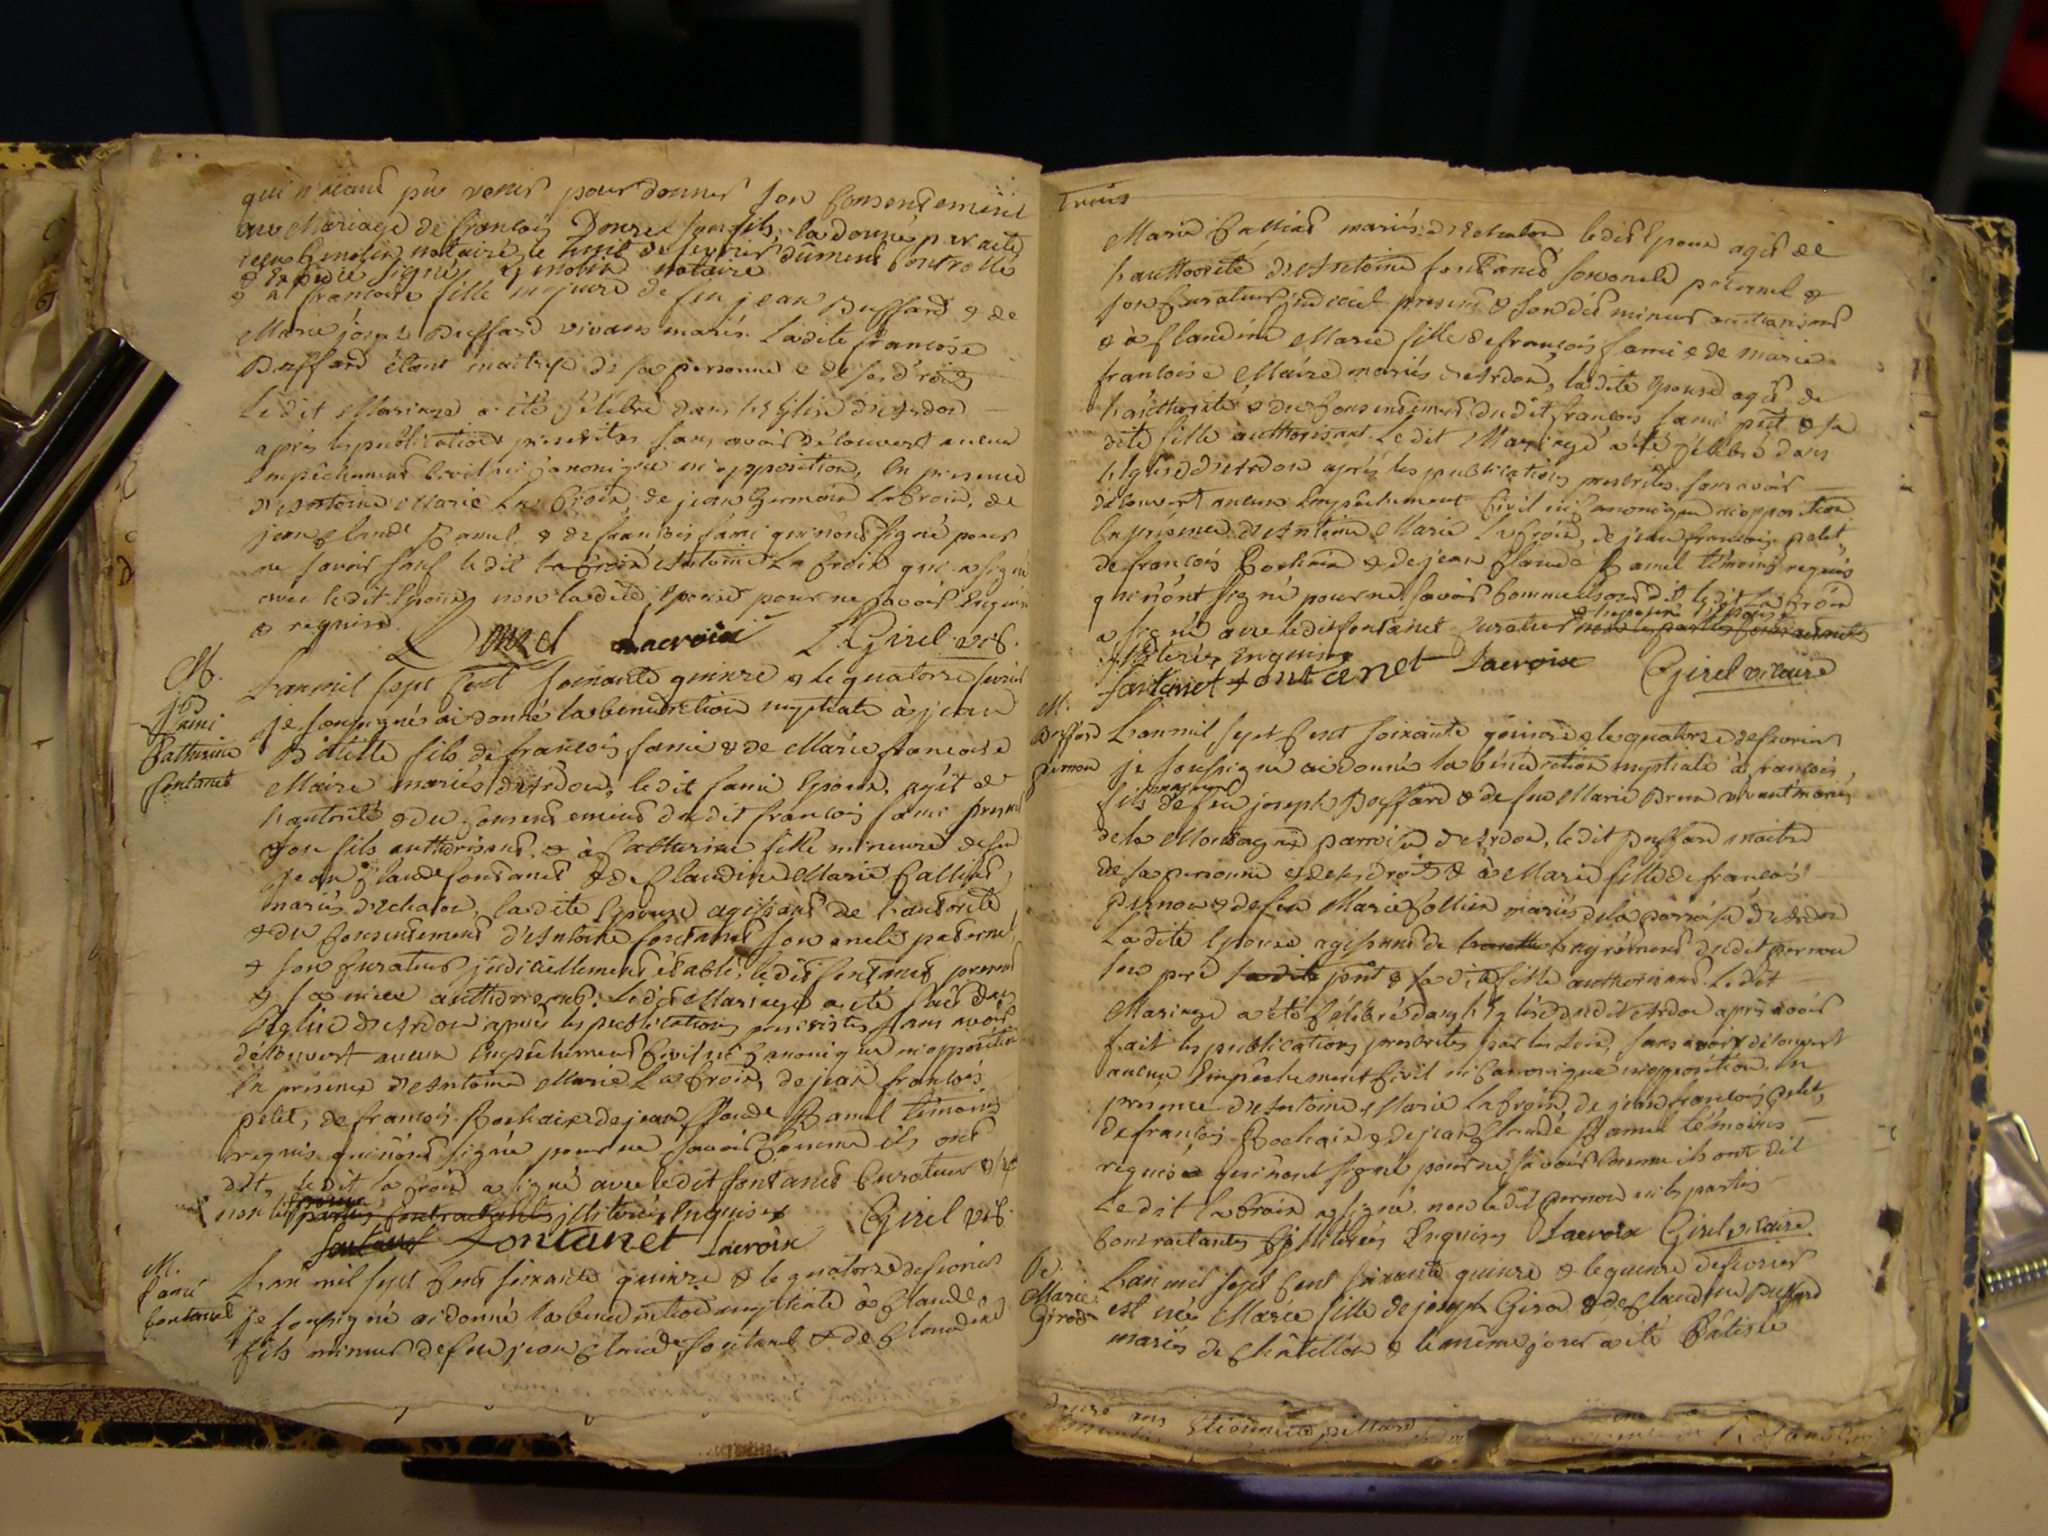 qui n'aiant pû venir pour donner son consentement
au Mariage de francois Donzel son fils, la donné par acte
reçu Genolin notaire le huit de fevrier dûment controllé
& expedié signé Genolin notaire
& à francoise fille majeure de feu jean Buffard & de
Marie josephe Buffard vivans mariés. Ladite francoise
Buffard étant maitresse de sa personne & de ses droits
Ledit Mariage a été célébré dans l'Eglise d'Ardon
après les publications prescrites sans avoir découvert aucun
Empêchement Civil ni Canonique ni opposition, En presence
d'Antoine Marie La Croix, de jean Germain La Croix, de
jean Claude Ramel, & de francois fami qui n'ont signé pour
ne savoir sauf ledit la Croix Antoine La Croix qui a signé
avec ledit Epoux, non ladite Epouse pour ne savoir Enquise
& requise.
Donzel Lacroix CGirel vic.
M.
fami
Catherine
fontanet
L'an mil sept Cent soixante quinze & le quatorze fevrier
je soussigné ai donné la bénédiction nuptiale à jean
Batiste fils de francois fami & de Marie francoise
Maire mariés d'Ardon, le dit fami Epoux, agit de
l'autorité & du Consentement du dit francois fami present
& son fils authorisant, & à Catherine fille mineure de feu
jean Claude fontanet & de Claudine Marie Calliat,
mariés d'Echalon, ladite Epouse agissant de l'autorité
& du Consentement d'Antoine fontanet son oncle paternel
& son Curateur judiciellement établi, ledit fontanet present
& sa niece authorisant. Ledit Mariage a été fait dans
l'Eglise d'Ardon après les publications prescrites sans avoir
découvert aucun Empêchement Civil ni Canonique ni opposition
En presence d'Antoine Marie La Croix, de jean francois
pelet, de francois Rochaix & de jean Claude Ramel témoins
requis qui n'ont signé pour ne savoir Comme ils ont
dit, ledit la Croix a signé avec ledit fontanet Curateur
non les Epoux parties Contractantes illiterés Enquises
CGirel vic.
fontanet fontanet Lacroix
M.
fami
fontanet
L'an mil sept Cent soixante quinze & le quatorze de fevrier
je soussigné ai donné la benediction nuptiale à Claude
fils mineur de feu jean Claude fontanet & de Claudine
Marie Calliat mariés d'Echalon ledit Epoux agit de
l'authorité d'Antoine fontanet son oncle paternel &
son Curateur judiciel present & son dit mineur authorisant
& à Claudine Marie fille de francois fami & de Marie
francoise Maire mariés d'Ardon, ladite Epouse agit de
l'authorité & du Consentement du dit francois fami pnt & sa
dite fille authorisant. Ledit Mariage a été célébré dans
l'Eglise d'Ardon après les publications prescrites, sans avoir
découvert aucun Empêchement Civil ni Canonique ni opposition
En presence d'Antoine Marie La Croix, de jean francois pelet,
de francois Rochaix & de jean Claude Ramel témoins requis
qui n'ont signé pour ne savoir Comme ils ont dit, ledit La Croix
a signé avec ledit fontanet Curateur non les parties Contractantes
illiterées Enquises
fontanet fontanet Lacroix CGirel vicaire
M.
Buffard
pernon
L'an mil sept Cent soixante quinze & le quatorze de fevrier
je soussigné ai donné la bénédiction nuptiale à francois
fils majeur de feu joseph Buffard & de feue Marie Brun vivant mariés
de la Montagne parroisse d'Ardon, ledit Buffard maitre
de sa personne & de ses droits & à Marie fille de francois
pernon & de feue Marie Collier mariés de la parroisse d'Ardon
Ladite Epouse agissant de l'agrément dudit pernon
son pere ladite pnt & ladite fille authorisant. Ledit
Mariage a été célébré dans l'Eglise dudit Ardon après avoir
fait les publications prescrites par les Loix, sans avoir découvert
aucun Empêchement Civil ni Canonique ni opposition, en
presence d'Antoine Marie La Croix, de jean francois Pelet,
de francois Rochaix & de jean Claude Ramel témoins
requis qui n'ont signé pour ne savoir Comme ils ont dit
Ledit La Croix a signé, non ledit pernon ni les parties
Contractantes illiterées Enquises Lacroix CGirel vicaire
Marie
Girod
L'an mil sept Cent soixante quinze & le quinze de fevrier
est née Marie fille de joseph Girod & de Claudine Buffard
mariés de Châtillon & le même jour a été Bâtisée